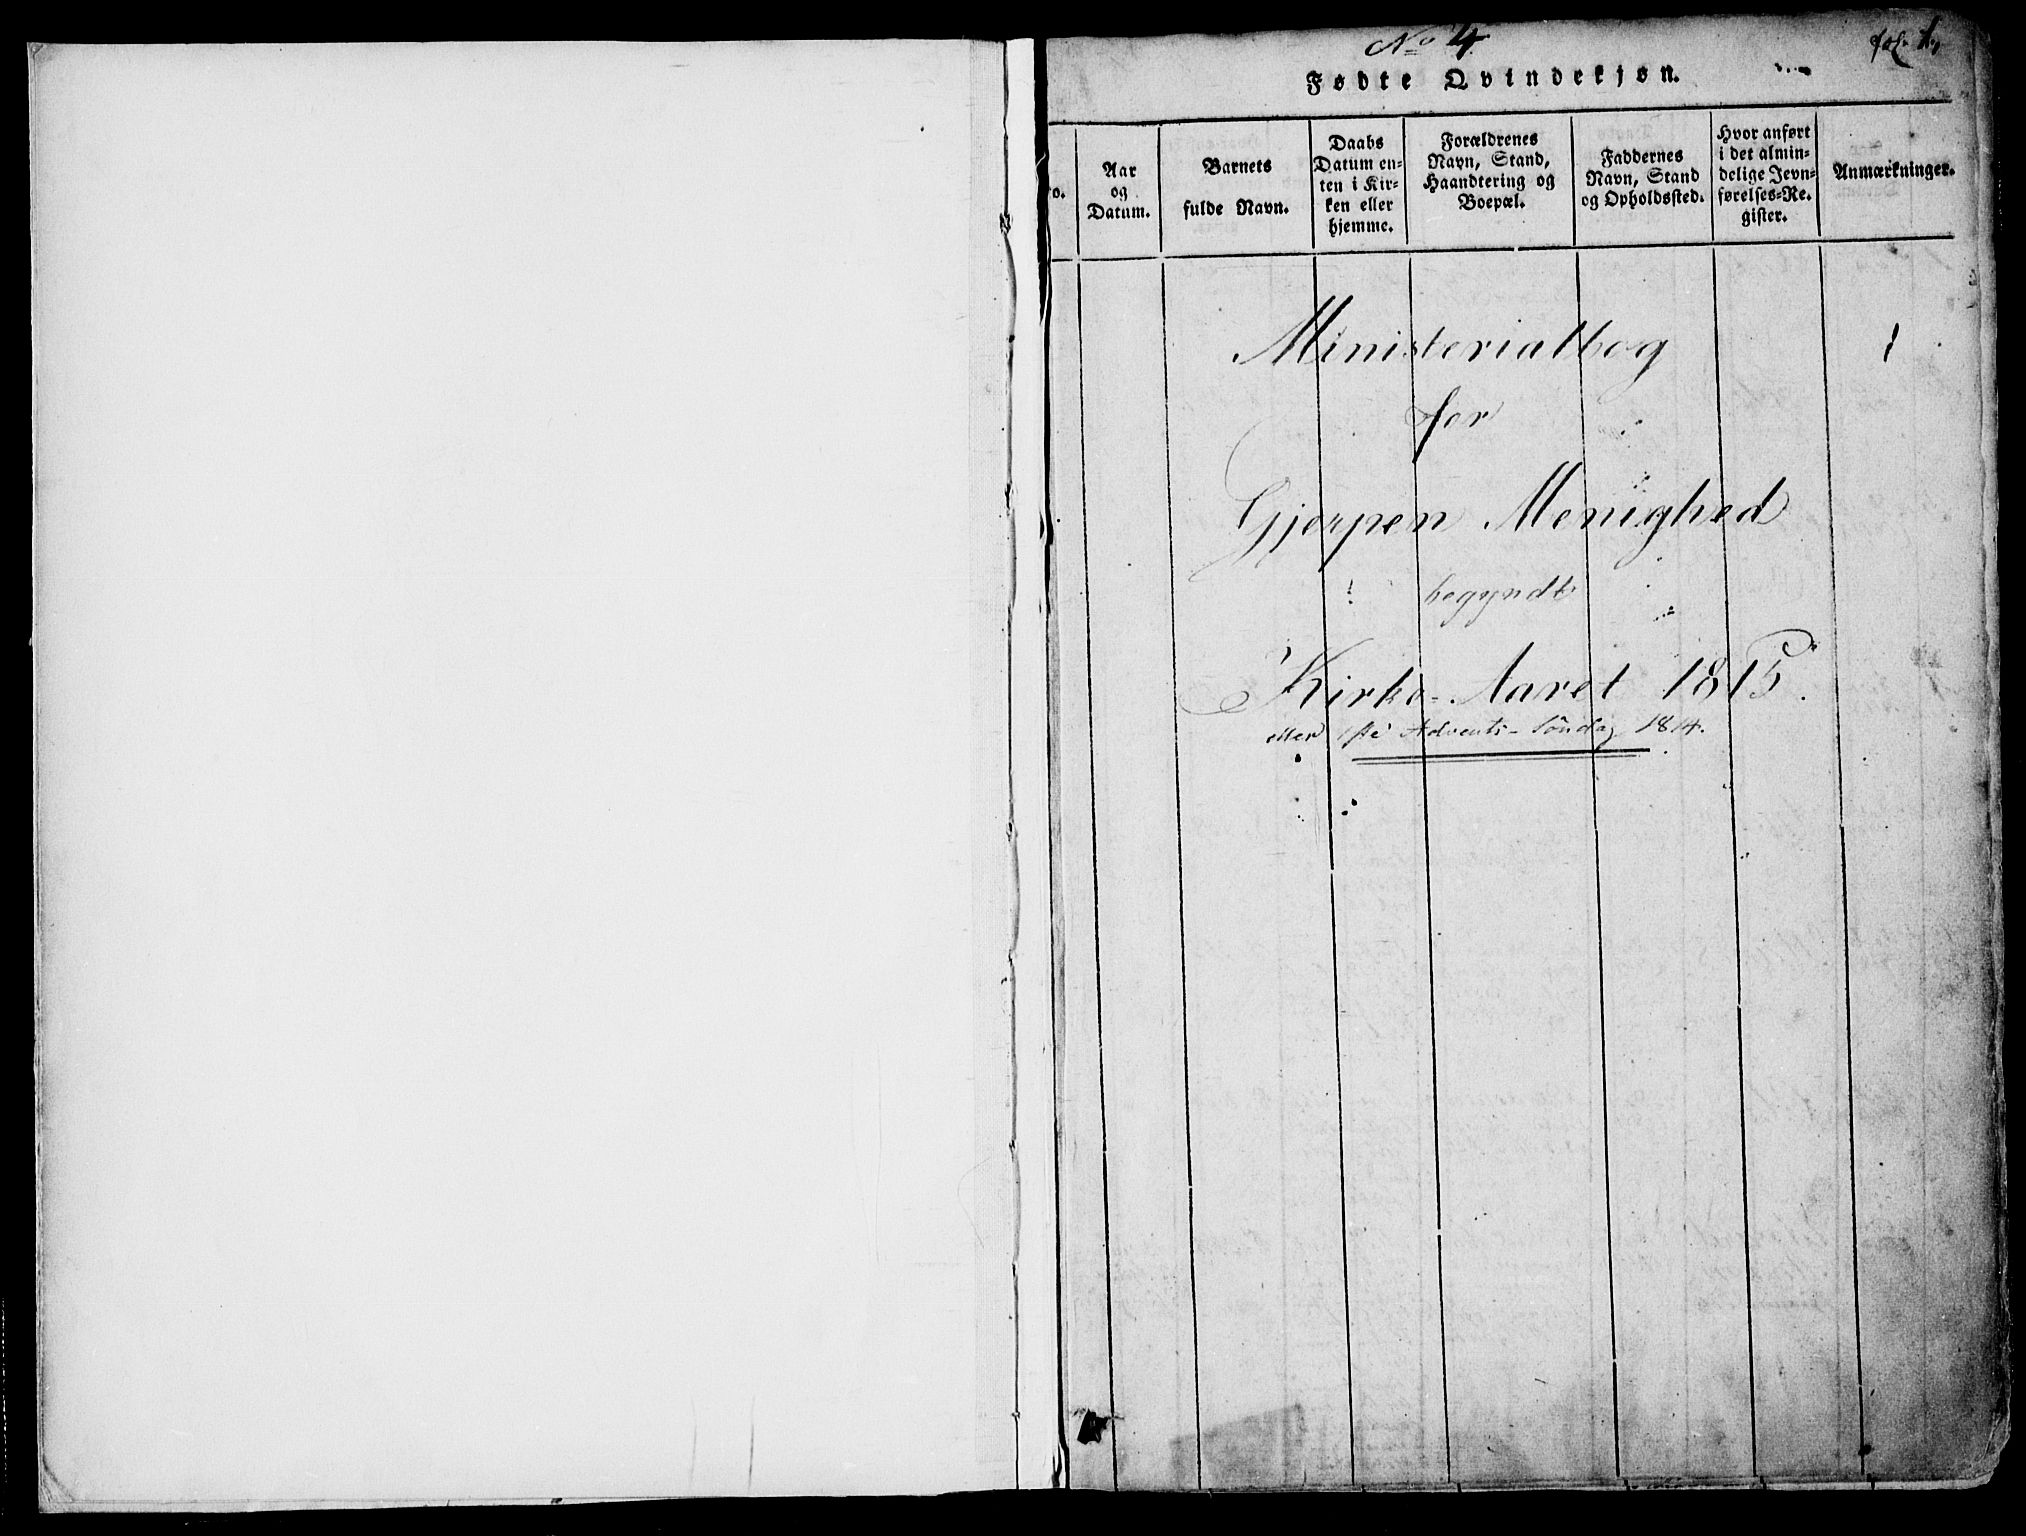 No 4.
fol. 1.
Fødte Qvindekjøn.
o.
Aar
og
Datum.
Barnets
fulde Navn.
Daabs
Datum en-
ten i Kir-
ken eller
hjemme.
Forældrenes
Navn, Stand,
Haandtering og
Boepæl.
Faddernes
Navn, Stand
og Opholdssted.
Hvor anført
i det almin-
delige Jevn-
førelses-Re-
gister.
Anmærkninger.
Ministerialbog
1
for
Gjerpen Menighed
begyndt
Kirke-Aaret 1815.
eller 1ste Advents-Söndag 1814.